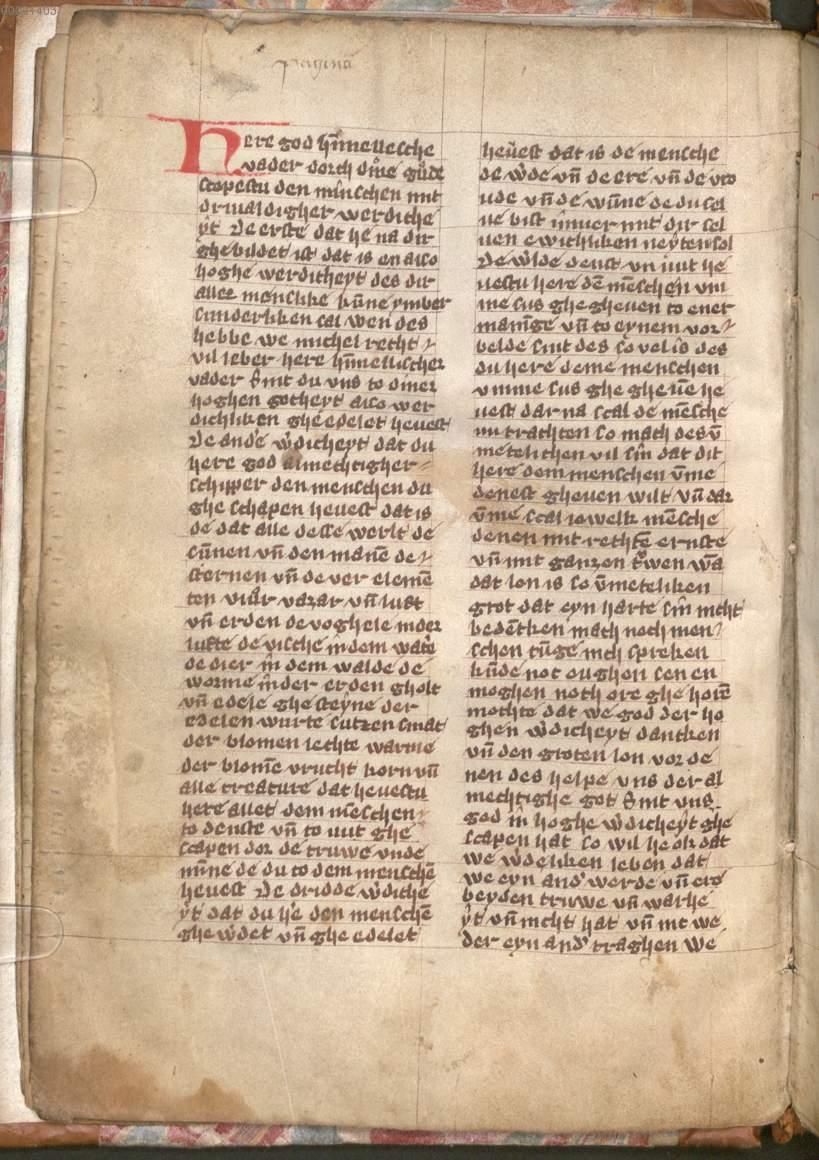 pagina
Here god hīmelesche
vader dorch dine gůde
scopestu den minschen mit
drivaldigher werdiche
yt De erste dat he na dir
ghebildet ist dat is en also
hoghe werdicheyt des dir
aller menslike kūne ymber
sunderliken sal wen des
hebbe we michel recht
vil leber here hīmelischer
vader Sint du vns to diner
hoghen gotheyt also wer
dichliken ghe edelet hevest
De ande w̓dicheyt dat du
here god almechtigher
schipper den menschen du
ghe schapen hevest dat is
de dat alle desse werlt de
sūnen vn̄ den manē de
sternen vn̄ de ver elemē
ten viůr vazar vn̄ luft
vn̄ erden de voghele in der
lufte de vische in dem wat̓e
de dier in dem walde de
worme in der erden gholt
vn̄ edele ghesteyne der
edelen wurte sutzen smak
der blomen lechte warwe
der blomē vrucht korn vn̄
alle creature dat hevestu
here allet dem mēschen
to denste vn̄ to nut ghe
scapen dor de truwe vnde
mīne de du to dem menschē
hevest De dridde w̓diche
yt dat du he̓ den menschē
ghe w̓det vn̄ ghe edelet
hevest dat is de mensche
de w̓de vn̄ de ere vn̄ de vro
ude vn̄ de wūne de du sel
ve bist immer mit dir sel
uen ewichliken neyten sol
De w̓lde denst vn nut he
uestu here dē mēschen vm
me sus ghe gheuen to ener
manīge vn̄ to eynem vor
belde sint des so vel is des
du here deme menschen
vmme sus ghe gheuē he
uest dar na scal de mēsche
nu trachten so mach des v̄
metelichen vil sin dat dit
here dem menschen v̄me
denest gheuen wilt vn̄ dar
v̄me scal iowelk mēsche
denen mit rechte ernste
vn̄ mit ganzen trwen wā
dat lon is so v̄meteliken
grot dat eyn harte sin nicht
bedēcken mach noch men
schen tūge mch spreken
kūde not oughen senen
moghen noth ore ghe horē
mochte dat we god der ho
ghen w̓dicheyt dancken
vn̄ den groten lon vor de
nen des helpe vns der al
mechtighe got Sint vns
god in hoghe w̓dicheyt ghe
scapen hat so wil he ok dat
we w̓deliken leben dat
we eyn and̓ werde vn̄ ere
beyden truwe vn̄ warhe
yt vn̄ nicht hat vn̄ nit we
der eyn and̓ traghen We